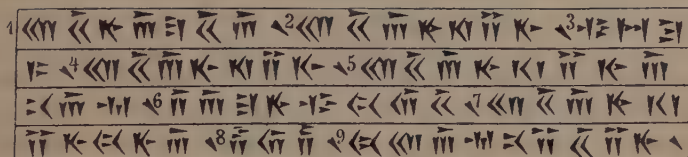 1 𐎧𐏁𐎹𐎠𐎼𐏁𐎠 𐏐 2 𐎧𐏁𐎠𐎹𐎰𐎡𐎹 𐏐 3 𐎺𐏀𐎼
𐎣 𐏐 4 𐎧𐏁𐎠𐎹𐎰𐎡𐎹 𐏐 5 𐎧𐏁𐎠𐎹𐎰𐎡𐎹𐎠
𐎴𐎠𐎶 𐏐 6 𐎭𐎠𐎼𐎹𐎺𐏃𐎢𐏁 𐏐 7 𐎧𐏁𐎠𐎹𐎰
𐎡𐎹𐏃𐎹𐎠 𐏐 8 𐎱𐎢𐏂 𐏐 9 𐏃𐎧𐎠𐎶𐎴𐎡𐏁𐎹 𐏐